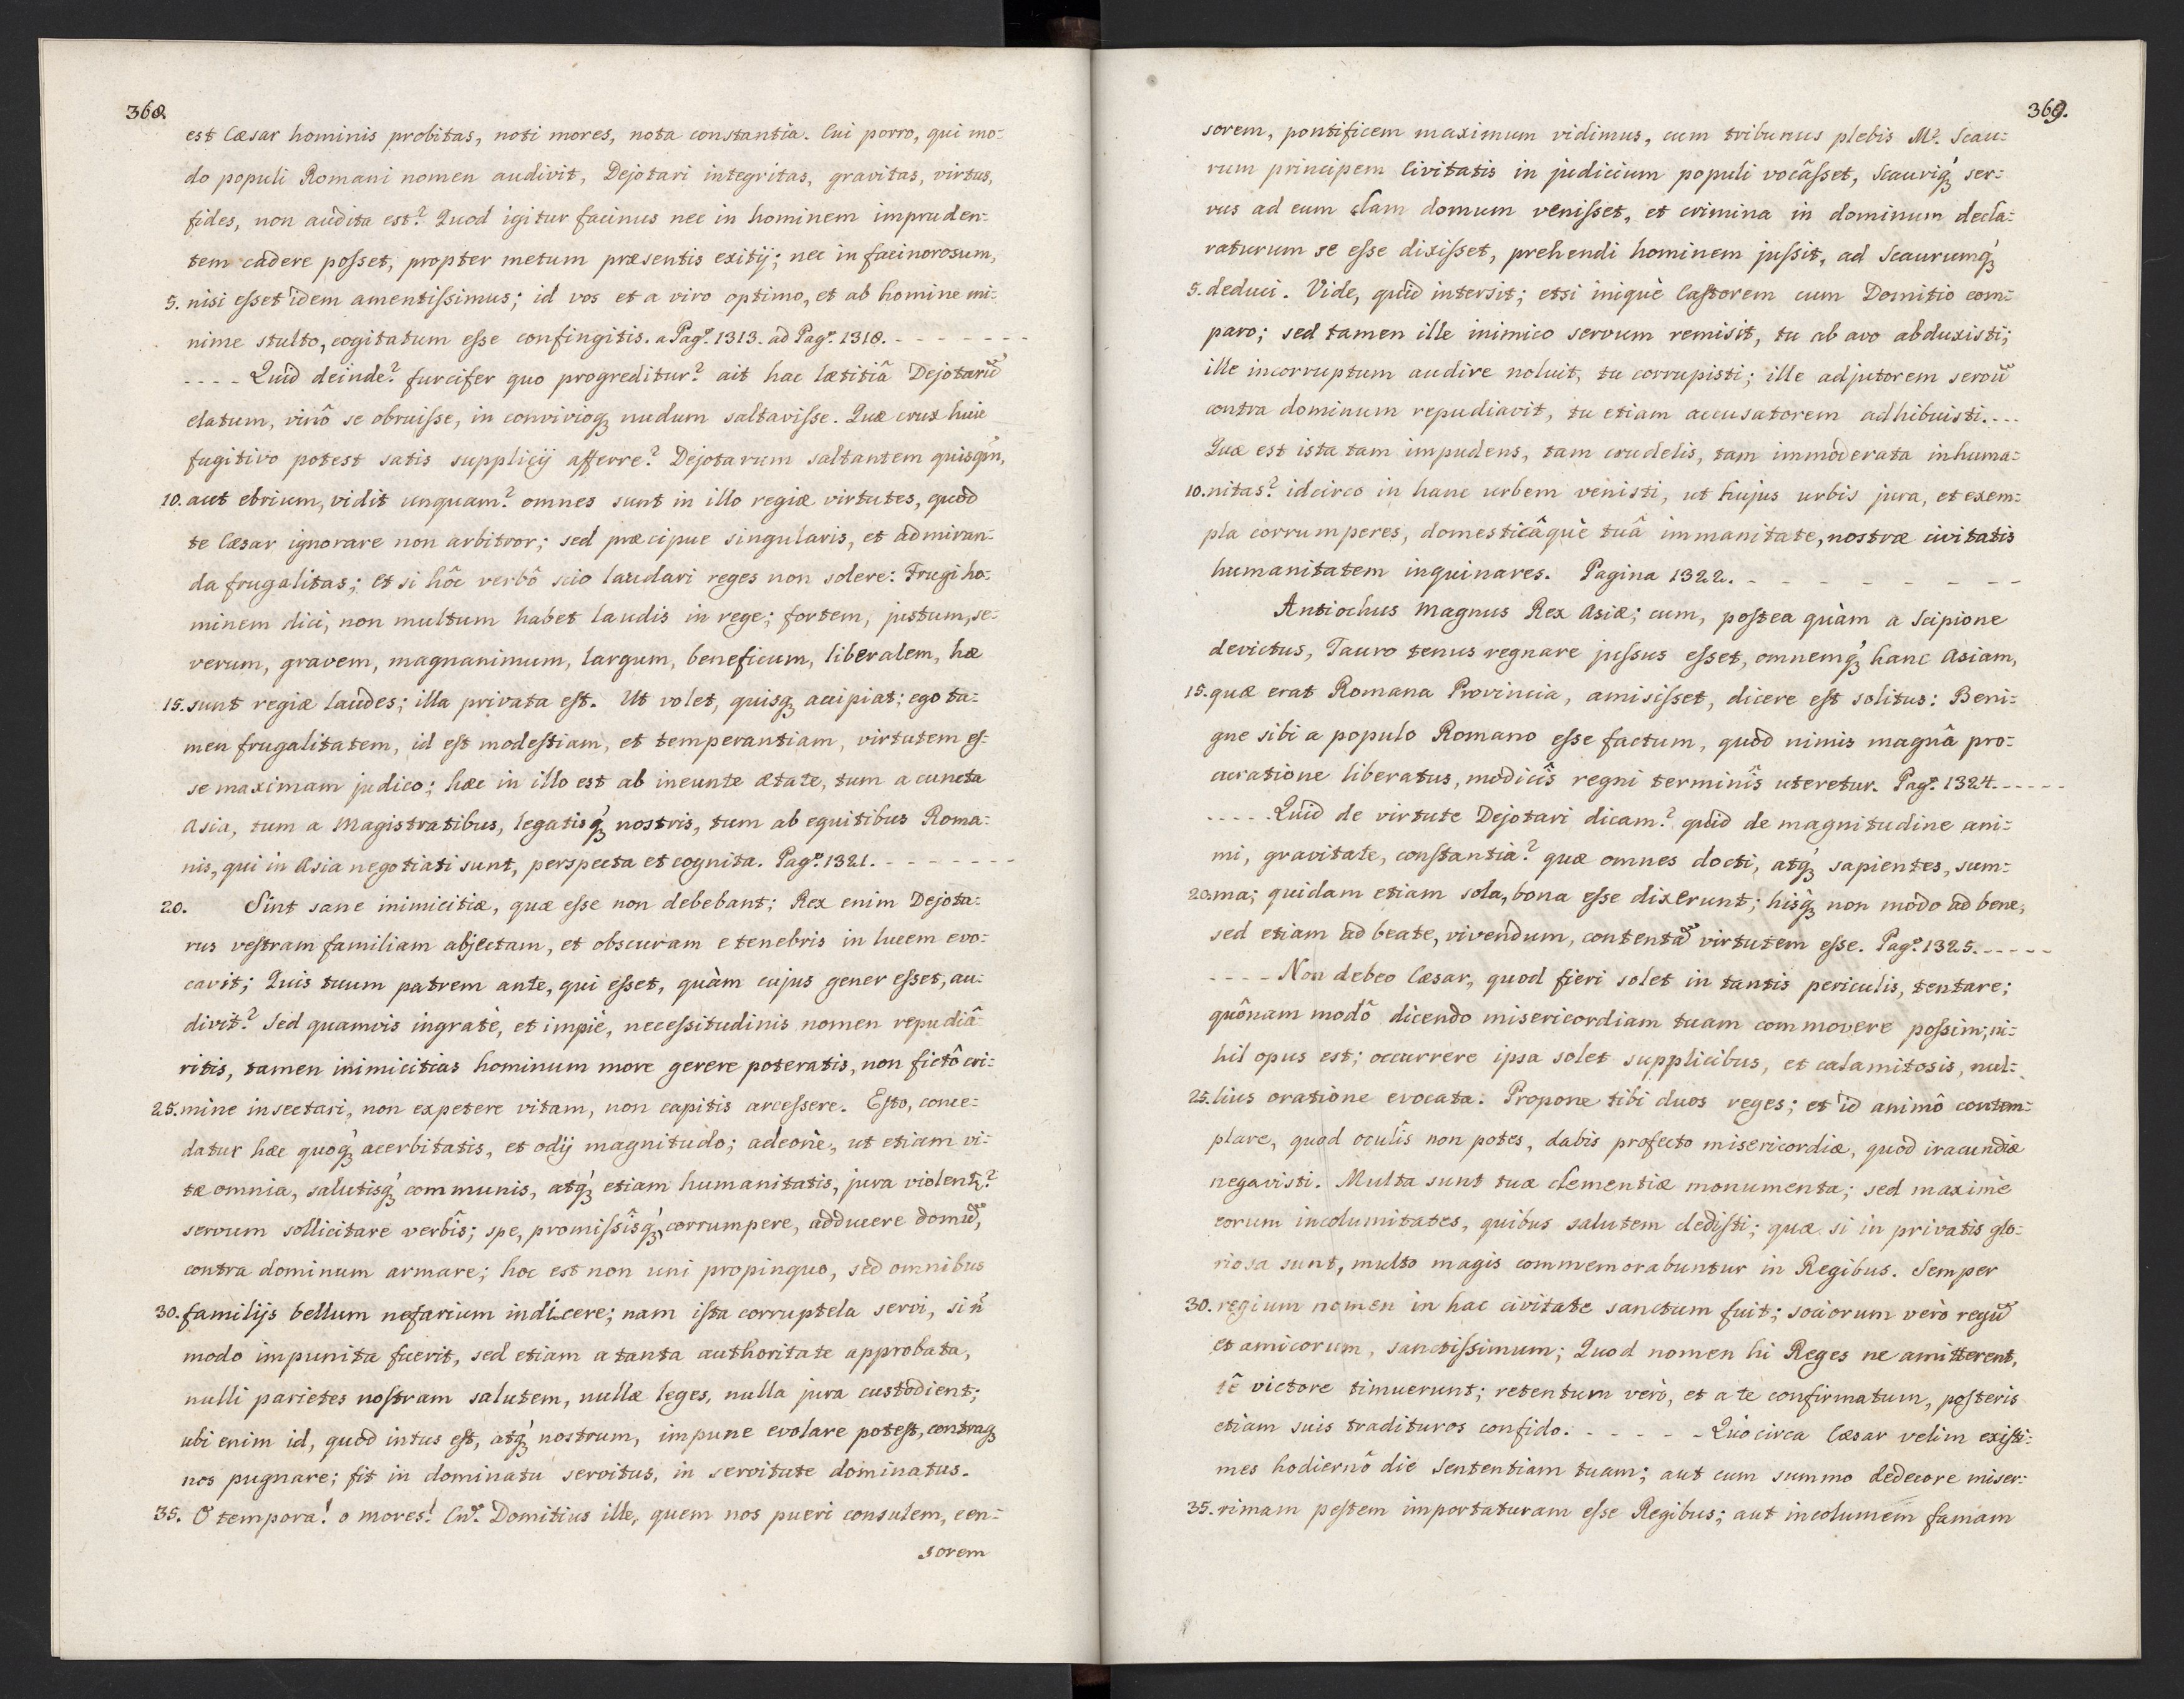 368.
est Cæsar hominis probitas, noti mores, nota constantia. Cui porro, qui mo=
do populi Romani nomen audivit, Dejotari integritas, gravitas, virtus,
fides, non audita est? Quod igitur facinus nec in hominem impruden=
tem cadere poſset, propter metum præsentis exitij; nec in facinorosum,
5. nisi eſset idem amentiſsimus; id vos et a viro optimo, et ab homine mi=
nime stulto, cogitatum eſse confingitis. a Pagᵃ. 1313. ad Pagᵃ. 1318. - - - - - - -
- - - - Quid deinde? furcifer quo progreditur? ait hac lætitiâ Dejotarũ
elatum, vinô se obruiſse, in convivioqꝫ nudum saltaviſse. Quæ crux huic
fugitivo potest satis supplicij afferre? Dejotarum saltantem quisqñ,
10. aut ebrium, vidit unquam? omnes sunt in illo regiæ virtutes, quod
te Cæsar ignorare non arbitror; sed præcipue singularis, et admiran=
da frugalitas; et si hôc verbô scio laudari reges non solere: Frugi ho=
minem dici, non multum habet laudis in rege; fortem, justum, se=
verum, gravem, magnanimum, largum, beneficum, liberalem, hæ
15. sunt regiæ laudes; illa privata eſt. Ut volet, quisqꝫ accipiat; ego ta=
men frugalitatem, id eſt modeſtiam, et temperantiam, virtutem eſ=
se maximam judico; hæc in illo est ab ineunte ætate, tum a cuncta
Asia, tum a Magistratibus, legatisqꝫ́ nostris, tum ab equitibus Roma=
nis, qui in Asia negotiati sunt, perspecta et cognita. Pagᵃ. 1321. - - - - - - - -
20. Sint sane inimicitiæ, quæ eſse non debebant; Rex enim Dejota=
rus veſtram familiam abjectam, et obscuram e tenebris in lucem evo=
cavit; Quis tuum patrem ante, qui eſset, quàm cujus gener eſset, au=
divit? Sed quamvis ingratè, et impiè, neceſsitudinis nomen repudiâ=
ritis, tamen inimicitias hominum more gerere poteratis, non fictô cri=
25. mine insectari, non expetere vitam, non capitis arceſsere. Eſto, conce=
datur hæc quoqꝫ́ acerbitatis, et odij magnitudo; adeone, ut etiam vi=
tæ omnia, salutisqꝫ́ communis, atqꝫ́ etiam humanitatis, jura violent̃?
servum sollicitare verbîs; spe, promiſsîsqꝫ́, corrumpere, adducere domũ,
contra dominum armare; hoc est non uni propinquo, sed omnibus
30. familijs bellum nefarium indicere; nam iſta corruptela servi, si ñ
modo impunita fuerit, sed etiam a tanta authoritate approbata,
nulli parietes noſtram salutem, nullæ leges, nulla jura custodient;
ubi enim id, quod intus eſt, atqꝫ́ nostrum, impune evolare poteſt, contraqꝫ
nos pugnare; fit in dominatu servitus, in servitute dominatus.
35. O tempora! o mores! Cnˢ. Domitius ille, quem nos pueri consulem, cen=
sorem
369.
sorem, pontificem maximum vidimus, cum tribunus plebis Mᵘ. Scau=
rum principem Civitatis in judicium populi vocâſset, Scauriqꝫ́ ser=
vus ad eum clam domum veniſset, et crimina in dominum decla=
raturum se eſse dixiſset, prehendi hominem juſsit, ad Scaurumqꝫ́
5. deduci. Vide, quid intersit; etsi iniquè Caſtorem cum Domitio com=
paro; sed tamen ille inimico servum remisit, tu ab avo abduxisti;
ille incorruptum audire noluit, tu corrupisti; ille adjutorem servũ
contra dominum repudiavit, tu etiam accusatorem adhibuisti. - - -
Quæ est ista tam impudens, tam crudelis, tam immoderata inhuma=
10. nitas? idcirco in hanc urbem venisti, ut hujus urbis jura, et exem=
pla corrumperes, domesticâquè tuâ immanitate, nostræ civitatis
humanitatem inquinares. Pagina 1322. - - - - - - - -
Antiochus Magnus Rex Asiæ; cum, poſtea quàm a Scipione
devictus, Tauro tenus regnare juſsus eſset, omnemqꝫ́ hanc Asiam,
15. quæ erat Romana Provincia, amisiſset, dicere eſt solitus: Beni=
gne sibi a populo Romano eſse factum, quod nimis magnâ pro=
curatione liberatus, modicîs regni terminîs uteretur. Pagᵃ. 1324. - - - - -
- - - - - Quid de virtute Dejotari dicam? quid de magnitudine ani=
mi, gravitate, conſtantia? quæ omnes docti, atqꝫ́ sapientes, sum=
20. ma; quidam etiam sola, bona eſse dixerunt; hisqꝫ́ non modo ad bene,
sed etiam ad beate, vivendum, contentã virtutem eſse. Pagᵃ. 1325. - - - - -
- - - - Non debeo Cæsar, quod fieri solet in tantis periculis, tentare;
quônam modô dicendo misericordiam tuam commovere poſsim; ni=
hil opus est; occurrere ipsa solet supplicibus, et calamitosis, nul=
25. lius oratione evocata. Propone tibi duos reges; et id animô contem=
plare, quod oculîs non potes, dabis profecto misericordiæ, quod iracundiæ
negavisti. Multa sunt tuæ clementiæ monumenta; sed maximè
eorum incolumitates, quibus salutem dediſti; quæ si in privatis glo=
riosa sunt, multo magis commemorabuntur in Regibus. Semper
30. regium nomen in hac civitate sanctum fuit; sociorum verò regũ
et amicorum, sanctiſsimum; Quod nomen hi Reges ne amitterent,
tê victore timuerunt; retentum verò, et a te confirmatum, poſteris
etiam suis tradituros confido. - - - - - Quò circa Cæsar velim exiſti=
mes hodiernô die Sententiam tuam; aut cum summo dedecore miser=
35. rimam peſtem importaturam eſse Regibus; aut incolumem famam